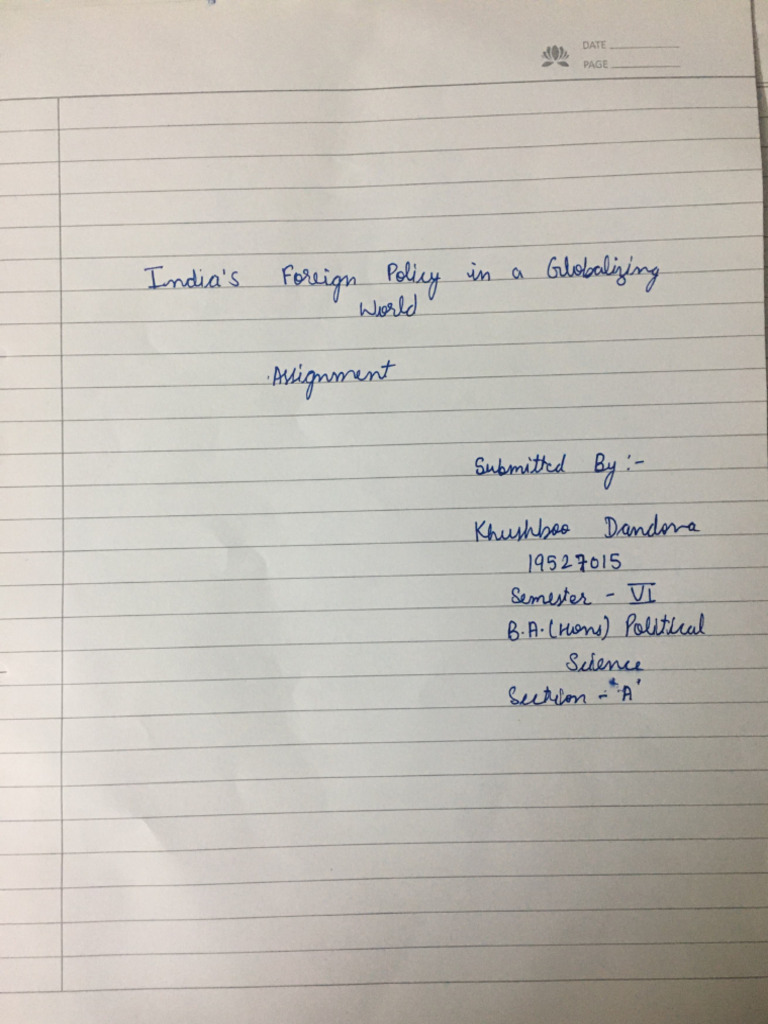 DATE
PAGE
India's Foreign Policy in a Globalizing
World
Assignment
Submitted By :-
Khushboo Dandona
19527015
Semester - VI
B.A.(Hons) Political
Science
Section - 'A'